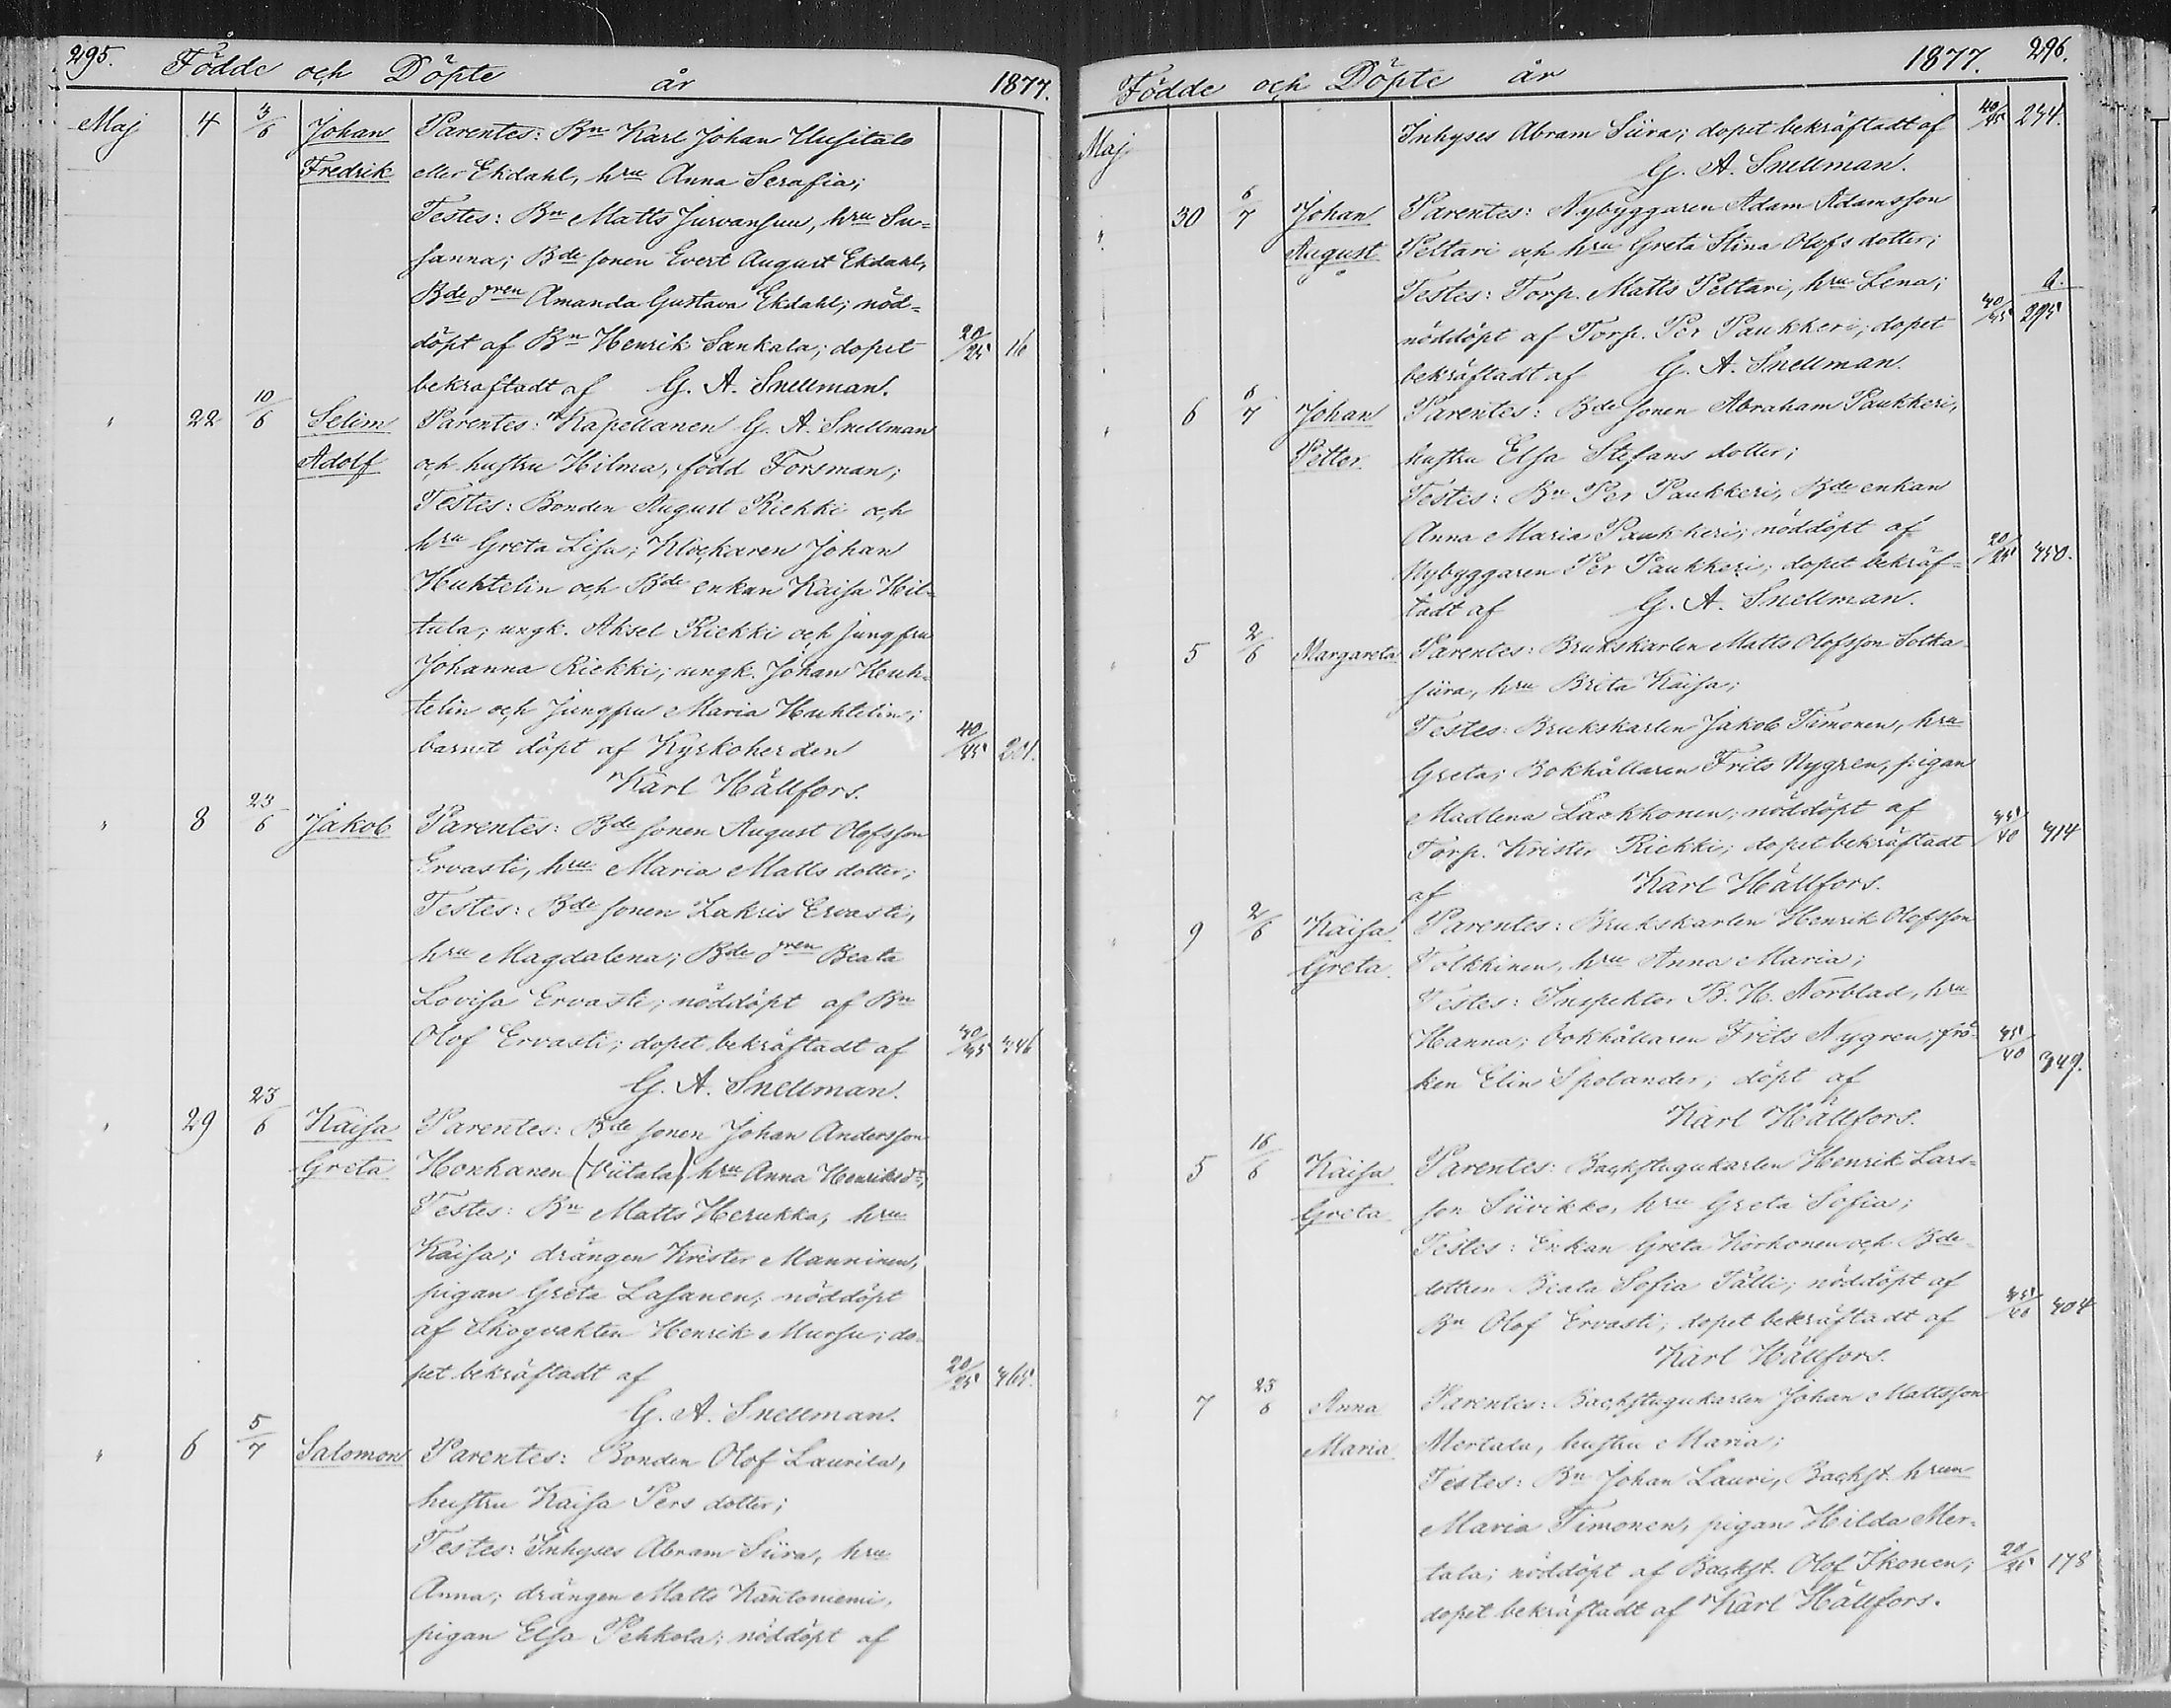 295. Födde och Döpte år 1877.
Maj 4 3/6 Johan Parentes: Bn Karl Johan Uusitalo
Fredrik eller Ekdahl, hru Anna Serafia;
Testes: Bn Matts Jurvansuu, hru Su=
sanna; Bde sonen Evert August Ekdahl,
Bde dren Amanda Gustava Ekdahl; nöd=
döpt af Bn Henrik Sankala; dopet 20/25 16
bekräftadt af G. A. Snellman.
" 22 10/6 Selim Parentes: Kapellanen G. A. Snellman
Adolf och hustru Hilma, född Forsman;
Testes: Bonden August Riekki och
hru Greta Lisa; Klockaren Johan
Huhtelin och Bde enkan Kaisa Hil=
tula; ungk. Aksel Riekki och jungfru
Johanna Riekki; ungk. Johan Huh=
telin och Jungfru Maria Huhtelin;
barnet döpt af Kyrkoherden 40/45 201.
Karl Hällfors.
" 8 23/6 Jakob Parentes: Bde sonen August Olofsson
Ervasti, hru Maria Matts dotter;
Testes: Bde sonen Zakris Ervasti,
hru Magdalena; Bde dren Beata
Lovisa Ervasti; nöddöpt af Bn
Olof Ervasti; dopet bekräftadt af 30/35 346
G. A. Snellman.
" 29 23/6 Kaisa Parentes: Bde sonen Johan Andersson
Greta Honkanen (Viitala) hru Anna Henriksdr;
Testes: Bn Matts Herukka, hru
Kaisa; drängen Krister Manninen,
pigan Greta Lasanen; nöddöpt
af Skogvakten Henrik Mursu; do=
pet bekräftadt af 20/25 365.
G. A. Snellman.
" 6 5/7 Salomon Parentes: Bonden Olof Laurila,
hustru Kaisa Pers dotter;
Testes: Inhyses Abram Siira, hru
Anna; drängen Matts Kantoniemi,
pigan Elsa Pehkola; nöddöpt af
Födde och Döpte år 1877. 296.
Maj Inhyses Abram Siira; dopet bekräftadt af 40/45 234.
G. A. Snellman.
" 30 6/7 Johan Parentes: Nybyggaren Adam Adamsson
August Pettari och hru Greta Stina Olofs dotter;
Testes: Torp. Matts Pettari, hru Lena;
nöddöpt af Torp. Per Paukkeri; dopet 30/35 295
bekräftadt af G. A. Snellman.
" 6 6/7 Johan Parentes: Bde sonen Abraham Paukkeri,
Petter hustru Elsa Stefans dotter;
Testes: Bn Per Paukkeri, Bde enkan
Anna Maria Paukkeri; nöddöpt af
Nybyggaren Per Paukkeri; dopet bekräf= 20/25 350.
tadt af G. A. Snellman.
" 5 2/6 Margareta Parentes: Brukskarlen Matts Olofsson Sotka=
siira, hru Brita Kaisa;
Testes: Brukskarlen Jakob Timonen, hru
Greta; Bokhållaren Frits Nygren, pigan
Madlena Laakkonen; nöddöpt af
Torp. Krister Riekki; dopet bekräftadt 35/40 314
af Karl Hällfors.
" 9 2/6 Kaisa Parentes: Brukskarlen Henrik Olofsson
Greta Tolkkinen, hru Anna Maria;
Testes: Inspektor B. H. Norblad, hru
Hanna; bokhållaren Frits Nygren, frö= 35/40 349.
ken Elin Spolander; döpt af
Karl Hällfors.
5 16/6 Kaisa Parentes: Backstugukarlen Henrik Lars=
Greta son Siivikko, hru Greta Sofia;
Testes: Enkan Greta Korkonen och Bde=
dottren Beata Sofia Tälli; nöddöpt af
Bn Olof Ervasti; dopet bekräftadt af 35/40 304
Karl Hällfors.
" 7 23/6 Anna Parentes: Backstugukarlen Johan Mattsson
Maria Mertala, hustru Maria;
Testes: Bn Johan Lauri, Backst. hrun
Maria Timonen, pigan Hilda Mer=
tala; nöddöpt af Backst. Olof Ikonen; 20/25 178
dopet bekräftadt af Karl Hällfors.